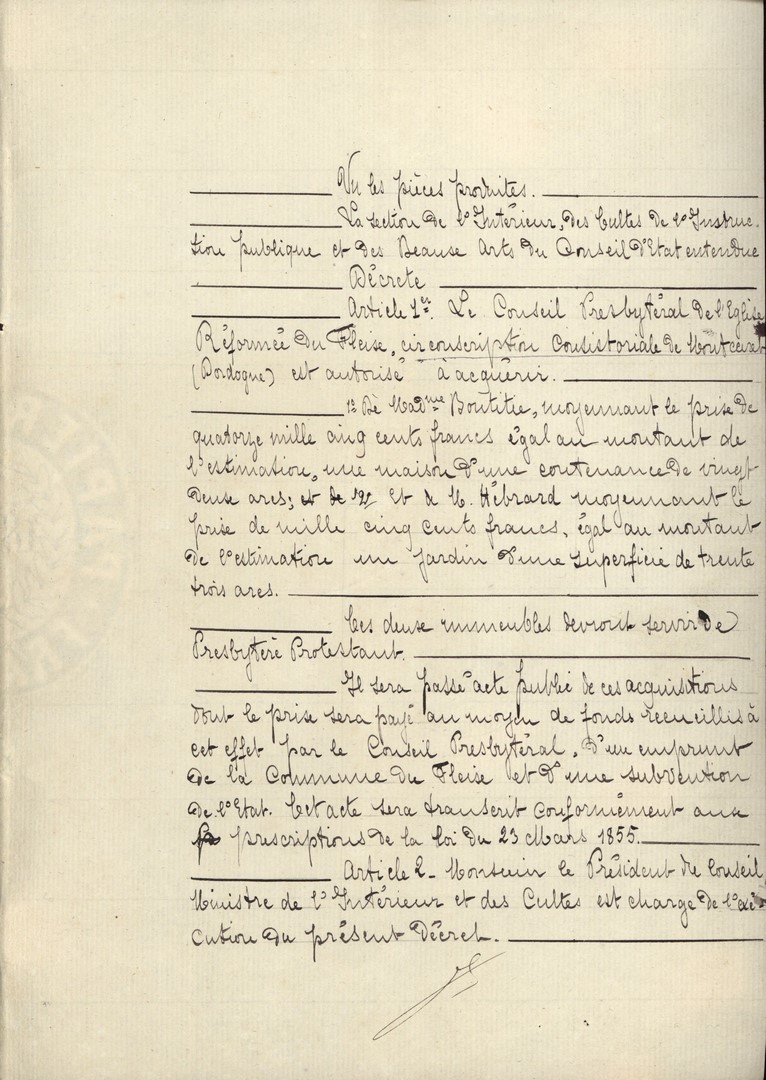 Vu les pièces produites.
La section de l'Intérieur, des Cultes de l'Instruc-
tion publique et des Beause Arts du Conseil d'Etat entendue
Décrete
Article 1er. Le Conseil Presbytéral de l'Eglise
Réformée du Fleise, circonscription Consistoriale de Montcaret
(Dordogne) est autorisé à acquérir.
1º De Madme Boutitie, moyennant le prise de
quatorze mille cinq cents francs égal au montant de
l'estimation, une maison d'une contenance de vingt
deuse ares; et de 2º Et de M. Hébrard moyennant le
prise de mille cinq cents francs, égal au montant
de l'estimation un jardin d'une superficie de trente
trois ares.
Ces deuse immeubles devront servir de
Presbytère Protestant.
Il sera passé acte public de ces acquisitions
dont le prise sera payé au moyen de fonds recueillis à
cet effet par le Conseil Presbytéral, d'un emprunt
de la Commune du Fleise et d'une subvention
de l'Etat. Cet acte sera transcrit conformément ause
prescriptions de la loi du 23 Mars 1855.
Article 2 - Monsieur le Président du Conseil
Ministre de l'Intérieur et des Cultes est chargé de l'exé-
cution du présent Décret.